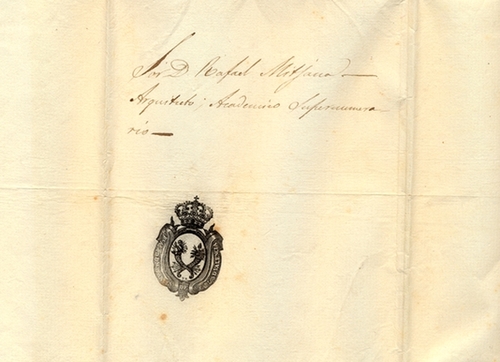 Sor. D. Rafael Mitjana
Arquitecto, Academico Supernumera
rio